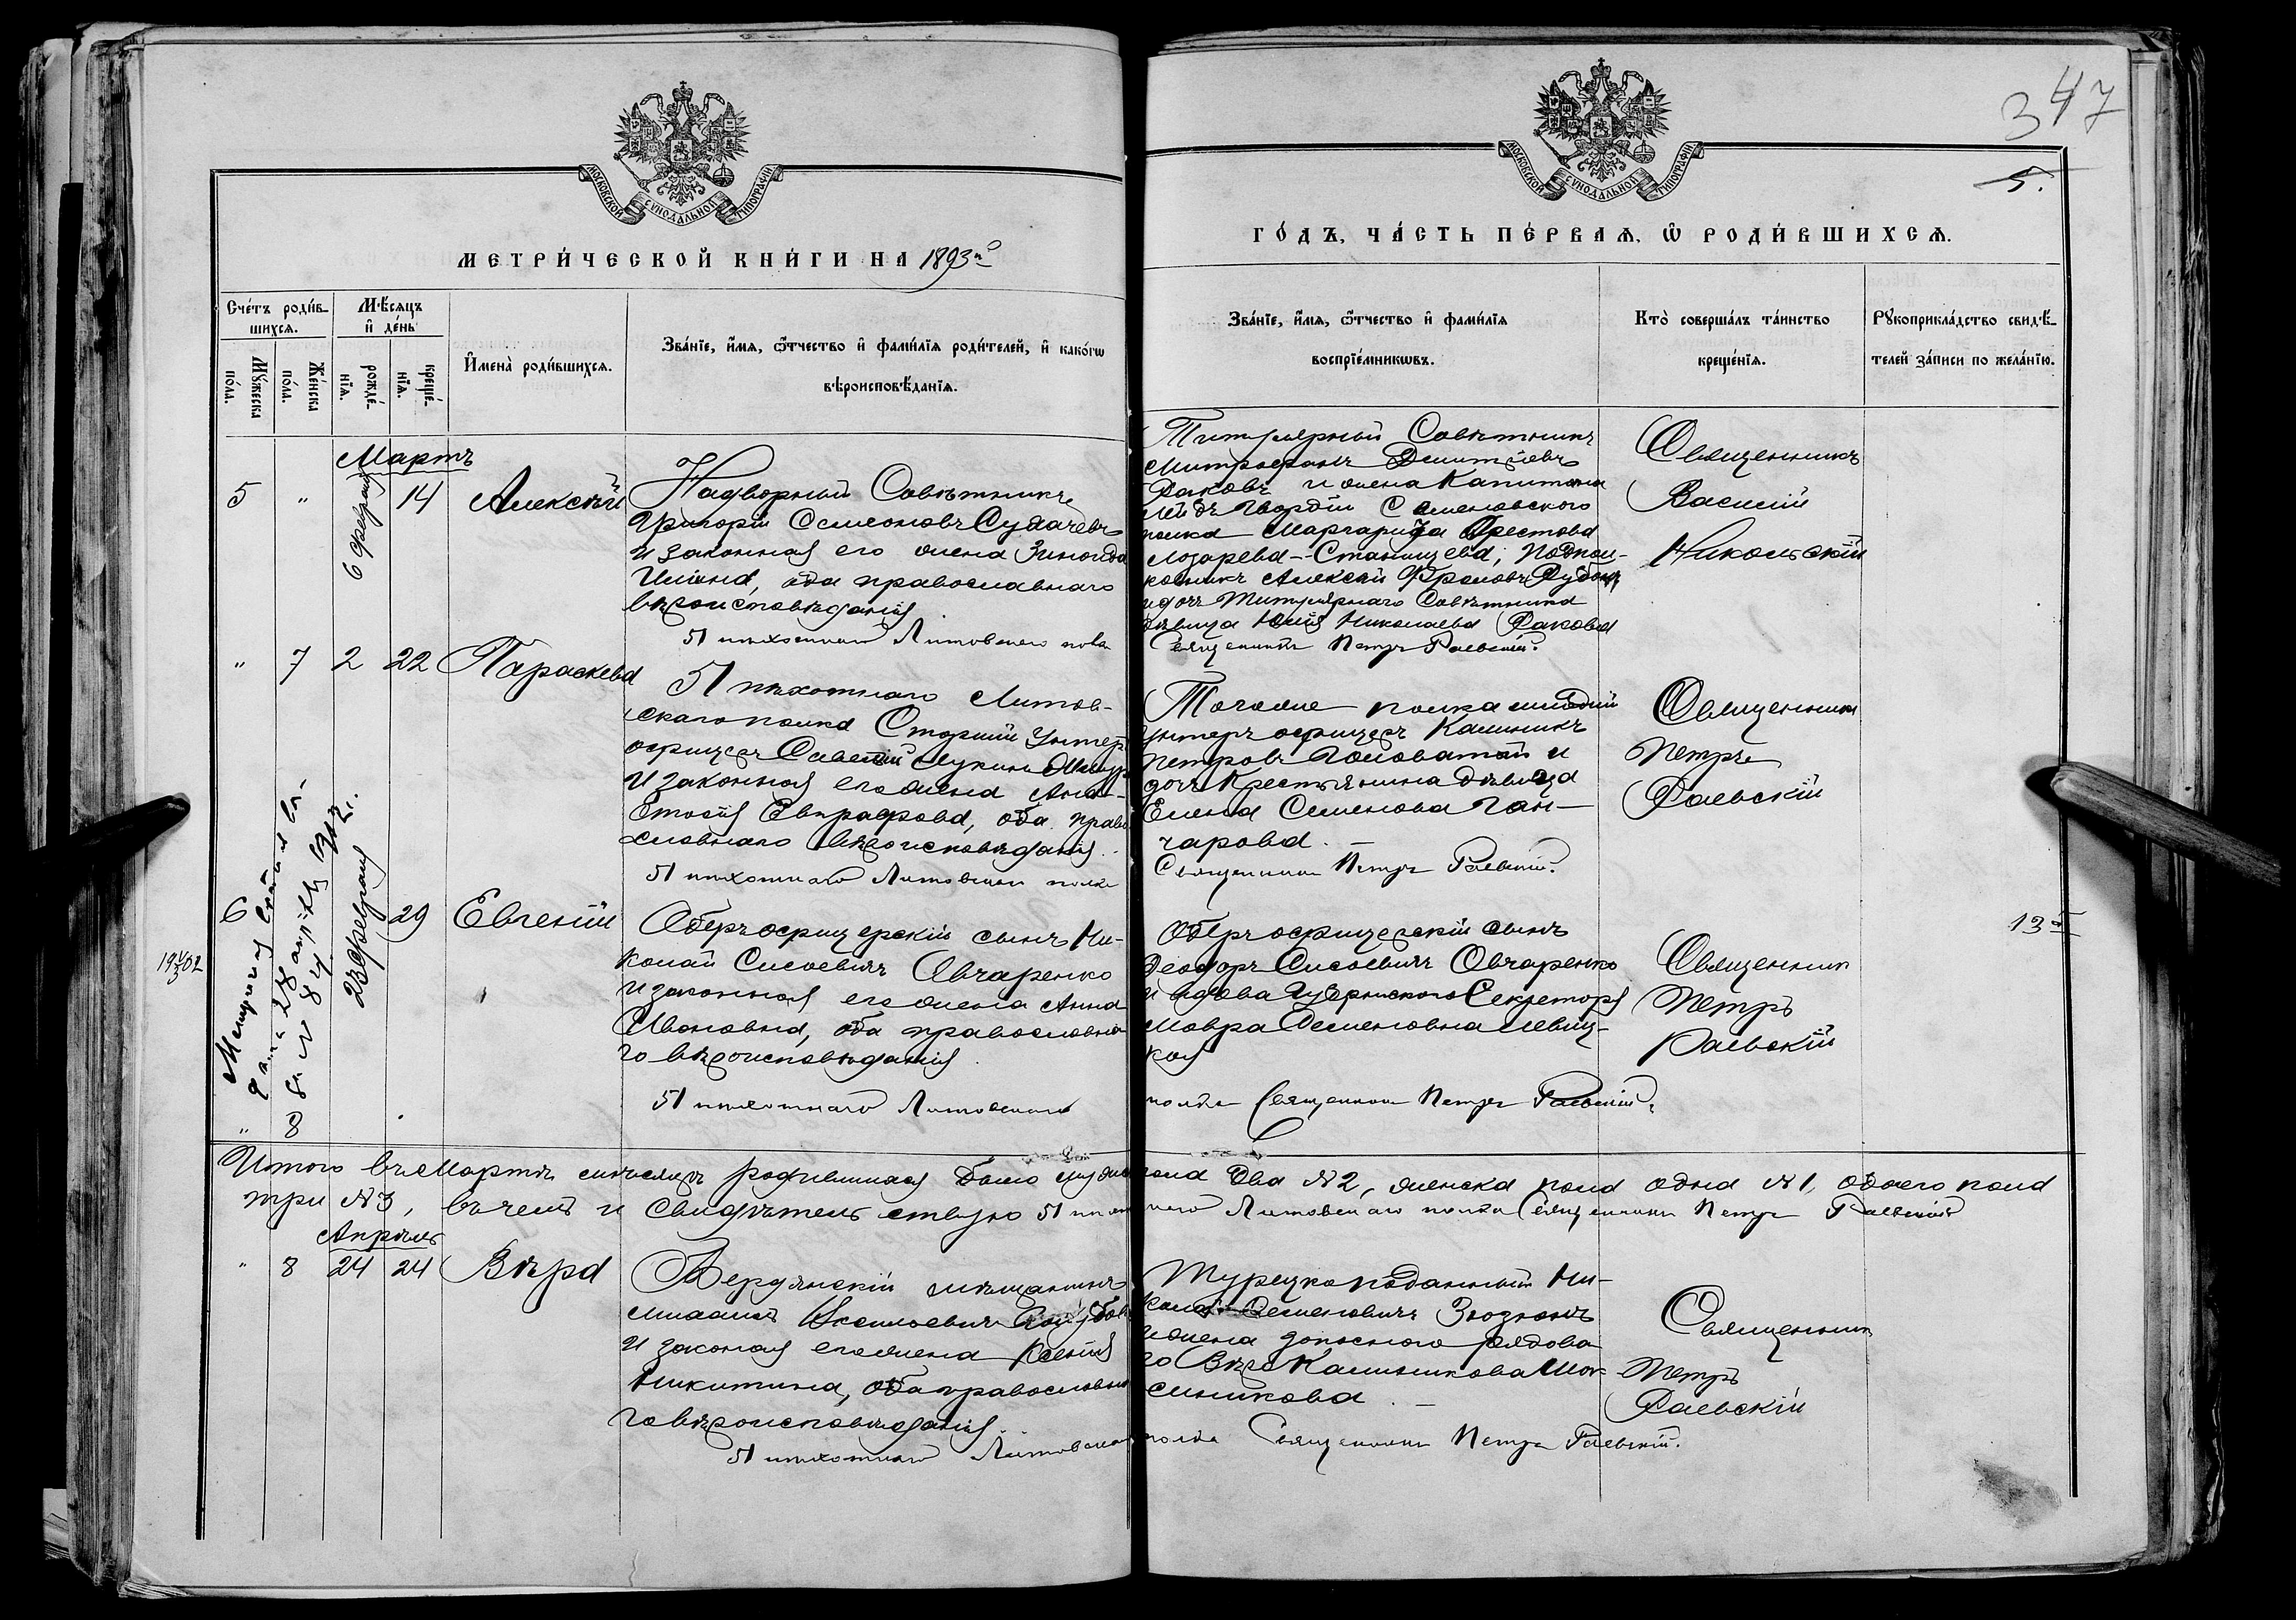 347
5.
МОСКОВСКОЙ СУНОДАЛЬНОЙ ТИПОГРАФІИ
МОСКОВСКОЙ СУНОДАЛЬНОЙ ТИПОГРАФІИ
МЕТРИ́ЧЕСКОЙ КНИ́ГИ НА 1893й
ГО́ДЪ, ЧА́СТЬ ПЕ́РВАѦ, Ѽ РОДИ́ВШИХСѦ.
Сче́тъ роди́в-
шихся.
Мѣ́сяцъ
и҆ де́нь
Мꙋ́жеска
по́ла.
Же́нска
по́ла.
рожде́-
нїѧ.
креще́-
нїѧ.
И҆мена̀ роди́вшихсѧ.
Зва́нїе, и҆́мѧ, ѻ҆́тчество и҆ фамилїѧ роди́телей, и҆ како́гѡ
вѣроисповѣ́данїѧ.
Зва́нїе, и҆́мѧ, ѻ҆́тчество и҆ фами́лїѧ
воспрїе́мникѡвъ.
Кто̀ соверша́лъ та́инство
креще́нїѧ.
Рꙋкоприкла́дство свидѣ́-
телей за́писи по жела́нїю.
Мартъ
5 " 6 февраля 14 Алексѣй
Надворный Совѣтникъ
Григорій Семеоновъ Сукачевъ
и законная его жена Зинаида
Ильина, оба православнаго
вѣроисповѣданія
51 пѣхотнаго Литовскаго полка
Титулярный Совѣтникъ
Митрофанъ Дмитріевъ
Раковъ и жена Капитана
Лейбъ Гвардіи Семеновскаго
полка Маргарита Орестова
Лазарева-Станищева; Подпол-
ковникъ Алексѣй Фроловъ
и дочь Титулярнаго Совѣтника
дѣвица Юлія Николаева Ракова
Священникъ Петръ Раевскій.
Священникъ
Василій
Никольскій
" 7 2 22 Параскева
51 пѣхотнаго Литов-
скаго полка Старшій Унтеръ
офицеръ Савелій Лукинъ
и законная его жена Ана-
стасія Евграфова, оба право
славнаго вѣроисповѣданія.
51 пѣхотнаго Литовскаго полка
Тогоже полка младшій
унтеръ офицеръ Калинникъ
Петровъ Головатый и
дочь Крестьянина дѣвица
Елена Семенова Ган-
чарова.
Священникъ Петръ Раевскій.
Священникъ
Петръ
Раевскій
6 23 февраля 29 Евгеній
Оберъ офицерскій сынъ Ни-
колай Сисоевичъ Овчаренко
и законная его жена Анна
Ивановна, оба православна
го вѣроисповѣданія.
51 пѣхотнаго Литовскаго
Оберъ офицерскій сынъ
Ѳеодоръ Сисоевичъ Овчаренко
и вдова Губернскаго Секретаря
Мавра Семеновна Левиц-
кая
полка Священникъ Петръ Раевскій.
Священник
Петръ
Раевскій
13
" 8
Итого въ Мартѣ мѣсяцѣ родившихся было мужес пола два №2, женска пола одна №1, обоего пола
три №3, въ чемъ и свидѣтельствую 51 пѣхотнаго Литовскаго полка Священникъ Петръ Раевскій
Апрѣль
" 8 24 24 Вѣра
Бердянскій мѣщанинъ
Михаилъ
и законая его жена Ксенія
Никитина, оба православна
го вѣроисповѣданія.
51 пѣхотнаго Литовскаго
Турецкоподанный Ни-
колай Семеновичъ
и жена запаснаго рядова
го Вѣра Калинникова
сникова.
полка Священникъ Петръ Раевскій.
Священник
Петръ
Раевскій